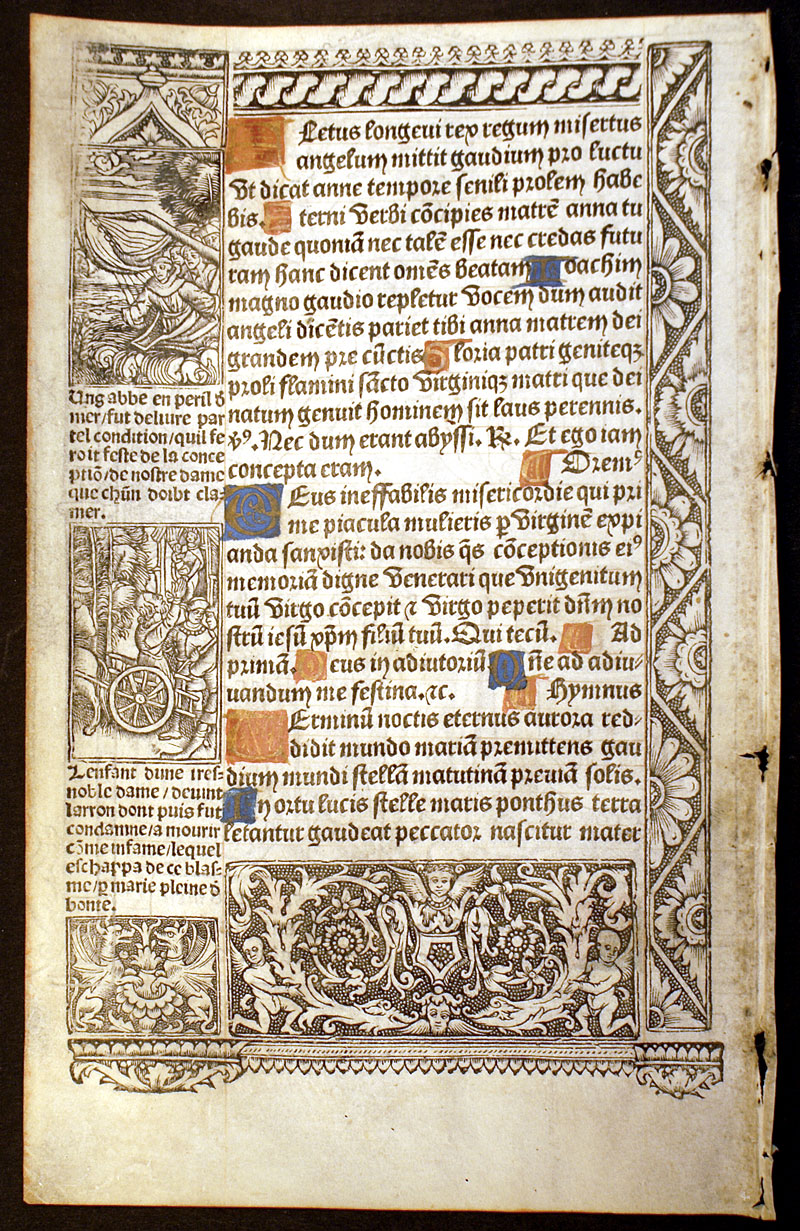 Fletus longeui rex regum misertus
angelum mittit gaudium pro luctu
Vt dicat anne tempore senili prolem habe
bis. Eterni verbi cōcipies matrē anna tu
gaude quoniā nec talē esse nec credas futu
ram hanc dicent omēs beatam Ioachim
magno gaudio repletur vocem dum audit
angeli dicētis pariet tibi anna matrem dei
grandem pre cūctis Gloria patri geniteqꝫ
proli flamini sācto virginiqꝫ matri que dei
natum genuit hominem sit laus perennis.
v̄ꝰ. Nec dum erant abyssi. ℟. Et ego iam
concepta eram. Oremꝰ
Deus ineffabilis misericordie qui pri
me piacula mulieris ꝑ virginē expi
anda sanxisti: da nobis q̄s cōceptionis eiꝰ
memoriā digne venerari que vnigenitum
tuū virgo cōcepit ⁊ virgo peperit dn̄m no
strū iesū xp̄m filiū tuū. Qui tecū. Ad
primā. Deus in adiutoriū Dn̄e ad adiu-
uandum me festina. ⁊c. Hymnus
Terminū noctis eternus aurora red-
didit mundo mariā premittens gau
dium mundi stellā matutinā preuiā solis.
In ortu lucis stelle maris ponthus terra
letantur gaudeat peccator nascitur mater
Ung abbe en peril d̄
mer/fut deliure par
tel condition/quil fe
roit feste de la conce
ptiō/de nostre dame
que chūn doibt cla-
mer.
Lenfant dune tres-
noble dame/deuint
larron dont puis fut
condamne/a mourir
cōme infame/lequel
eschappa de ce blas-
me/ꝑ marie pleine d̄
bonte.